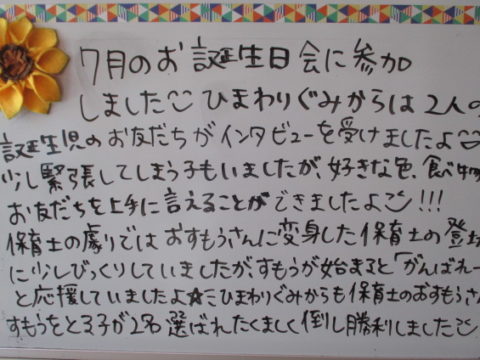 7月のお誕生日会に参加
しました ひまわりぐみからは2人の
誕生児のお友だちがインタビューを受けましたよ
少し緊張してしまう子もいましたが、好きな色、食べ物
お友だちを上手に言えることができましたよ!!!
保育士の劇りではおすもうさんに変身した保育士の登場
に少しびっくりしていましたが、すもうが始まると「がんばれー
と応援していましたよ☆ミひまわりぐみからも保育士のおすもうさ
すもうをとる子が2名選ばれたくましく倒し勝利しました